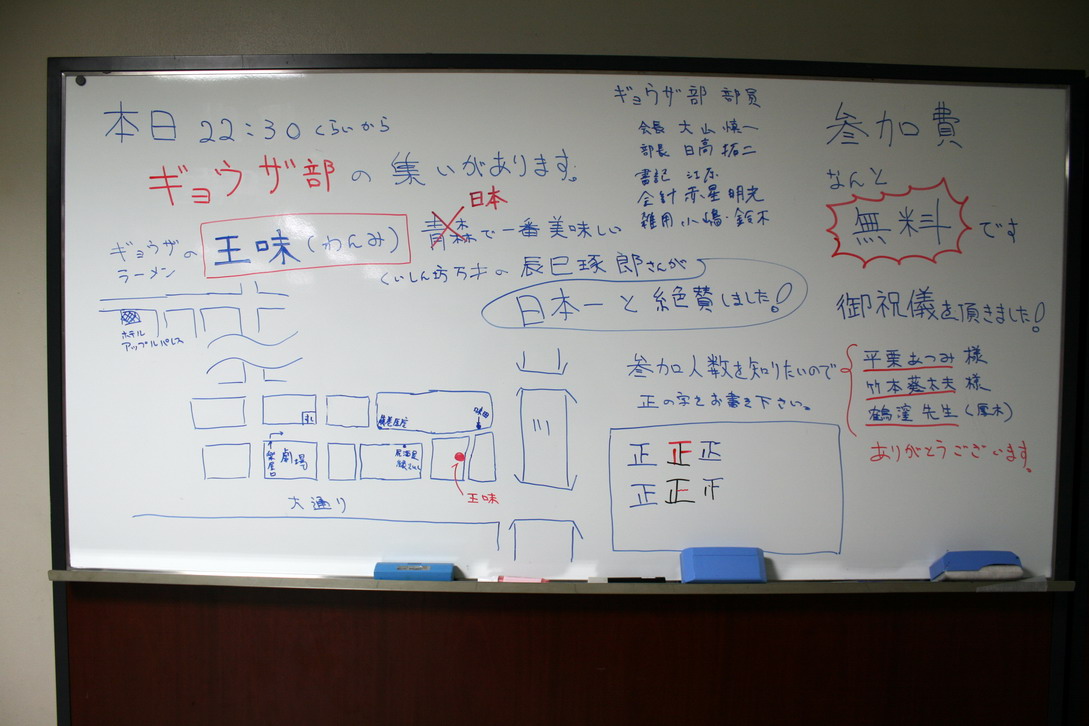 本日 22:30くらいから
ギョウザ部の集いがあります。
ギョウザの
ラーメン
王味(わんみ)
青森で一番美味しい
日本
くいしん坊万才の辰巳琢郎さんが
日本一と絶賛しました!
ギョウザ部 部員
会長 大山 慎一
部長 日高 拓二
書記 江原
会計 赤星 明光
雑用 小嶋 鈴木
参加費
なんと
無料です
御祝儀を頂きました!
平栗あつみ 様
竹本葵太夫 様
鶴窪先生(厚木)
ありがとうございます。
参加人数を知りたいので
正の字をお書き下さい。
正 正 正
正 正
ホテル
アップルパレス
劇場
楽屋口
居酒屋
王味
川
大通り